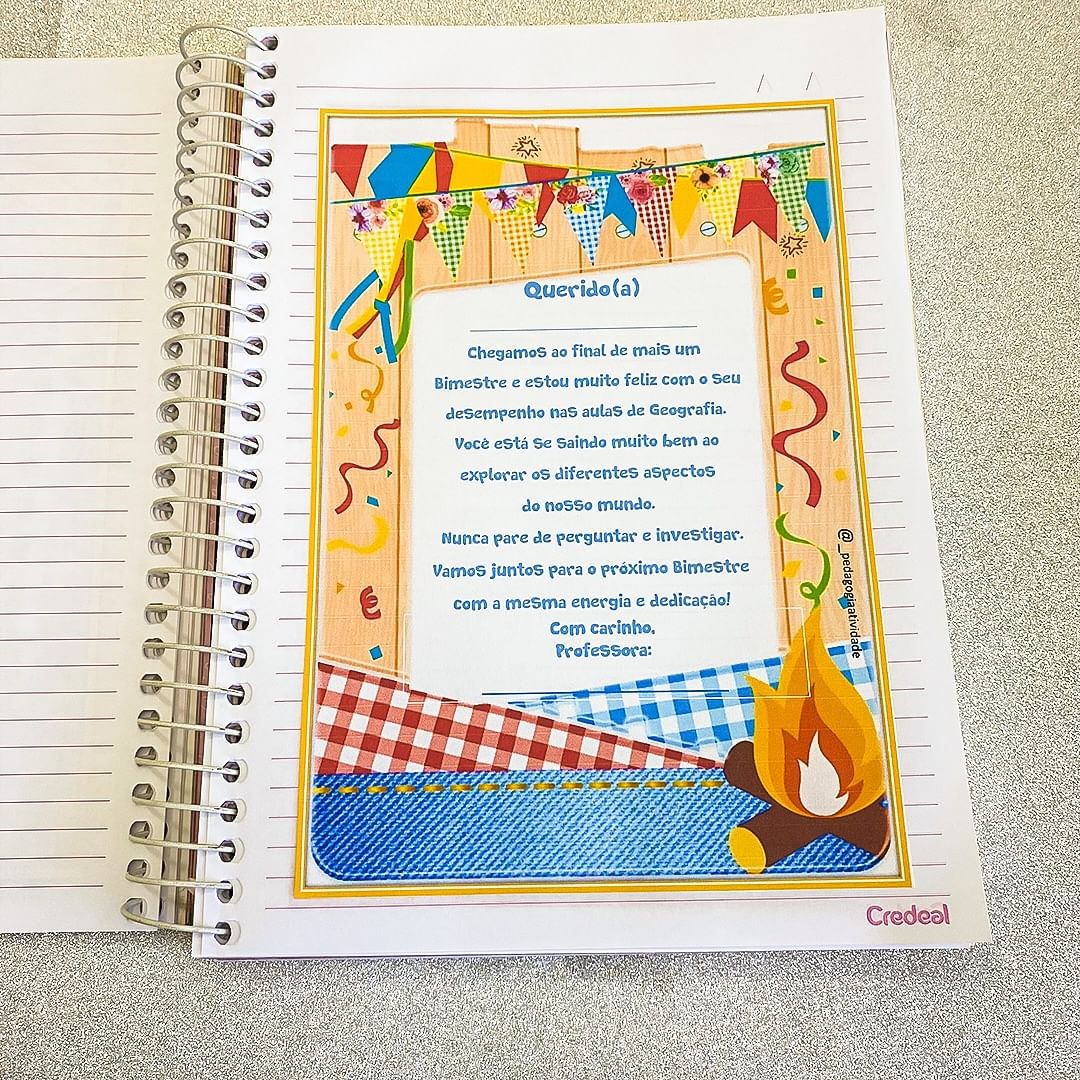 Querido(a)
Chegamos ao final de mais um
Bimestre e estou muito feliz com o seu
desempenho nas aulas de Geografia.
Você está se saindo muito bem ao
explorar os diferentes aspectos
do nosso mundo.
Nunca pare de perguntar e investigar.
Vamos juntos para o próximo Bimestre
com a mesma energia e dedicação!
Com carinho,
Professora:
@_pedagogiaatividade
Credeal